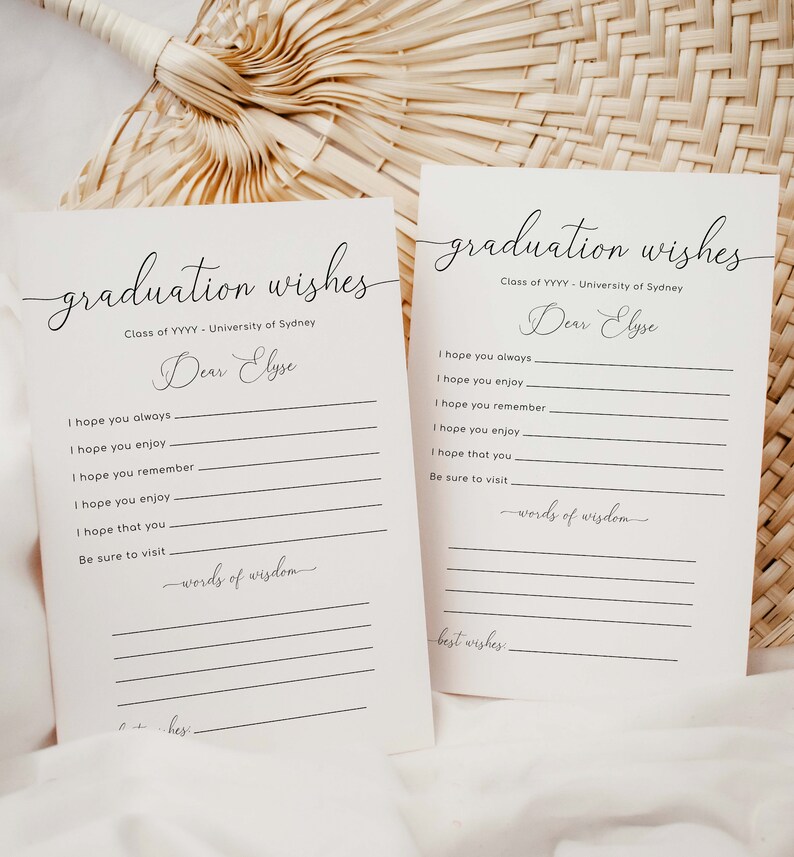 graduation wishes
Class of YYYY - University of Sydney
Dear Elyse
I hope you always
I hope you enjoy
I hope you remember
I hope you enjoy
I hope that you
Be sure to visit
words of wisdom
graduation wishes
Class of YYYY - University of Sydney
Dear Elyse
I hope you always
I hope you enjoy
I hope you remember
I hope you enjoy
I hope that you
Be sure to visit
words of wisdom
best wishes,